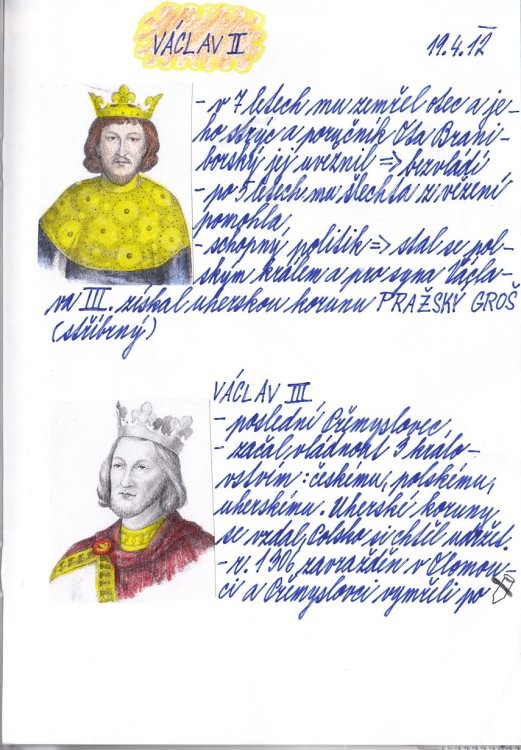 VÁCLAV II
19.4.12
- v 7 letech mu zemřel otec a je-
ho strýc a poručník Ota Brani-
borský jej uvěznil => bezvládí
- po 5 letech mu šlechta z vězení
pomohla
- schopný politik => stal se pol-
ským králem a pro syna Václa-
va III. získal uherskou korunu PRAŽSKÝ GROŠ
(stříbrný)
VÁCLAV III
- poslední Přemyslovec,
- začal vládnout 3 králo-
vstvím: českému, polskému,
uherskému. Uherské koruny
se vzdal, Polsko si chtěl udržet.
- r. 1306 zavražděn v Olomou-
ci a Přemyslovci vymřeli po